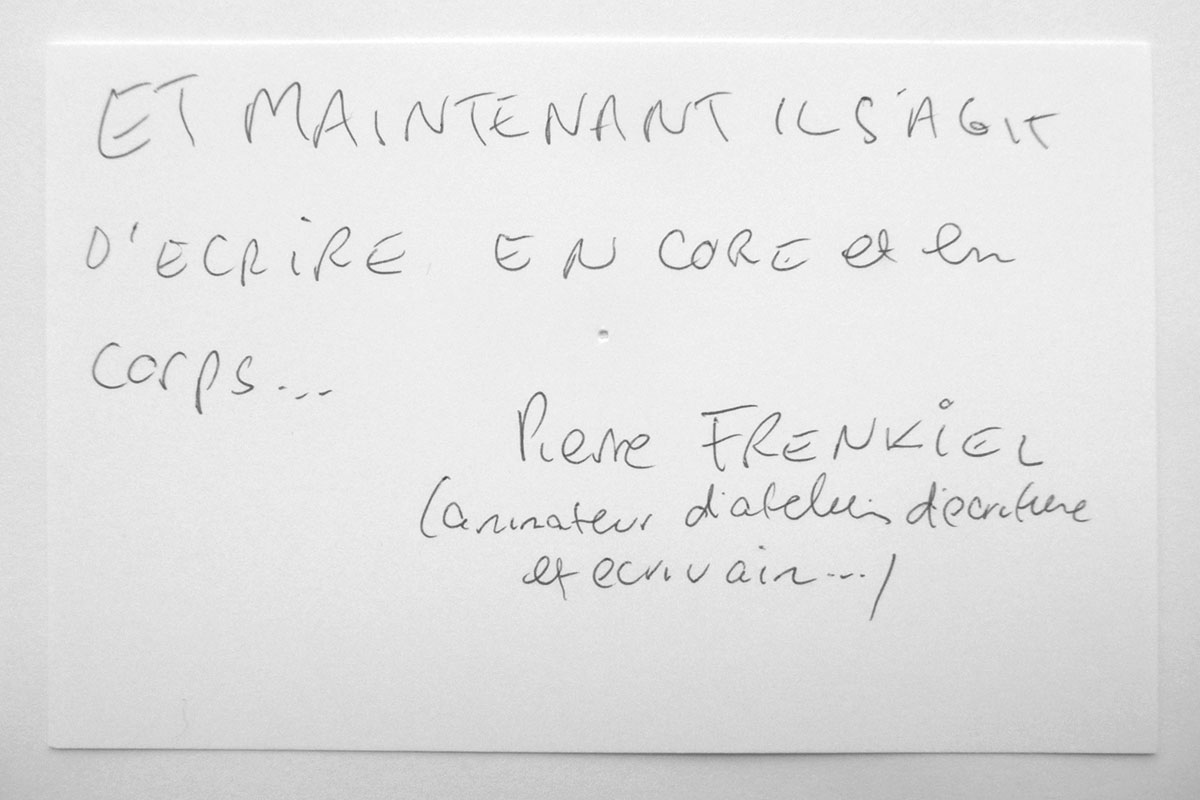 ET MAINTENANT IL S'AGIT
D'ECRIRE EN CORE et en
corps...
Pierre FRENKIEL
(animateur d'atelier d'écriture
et ecrivain...)